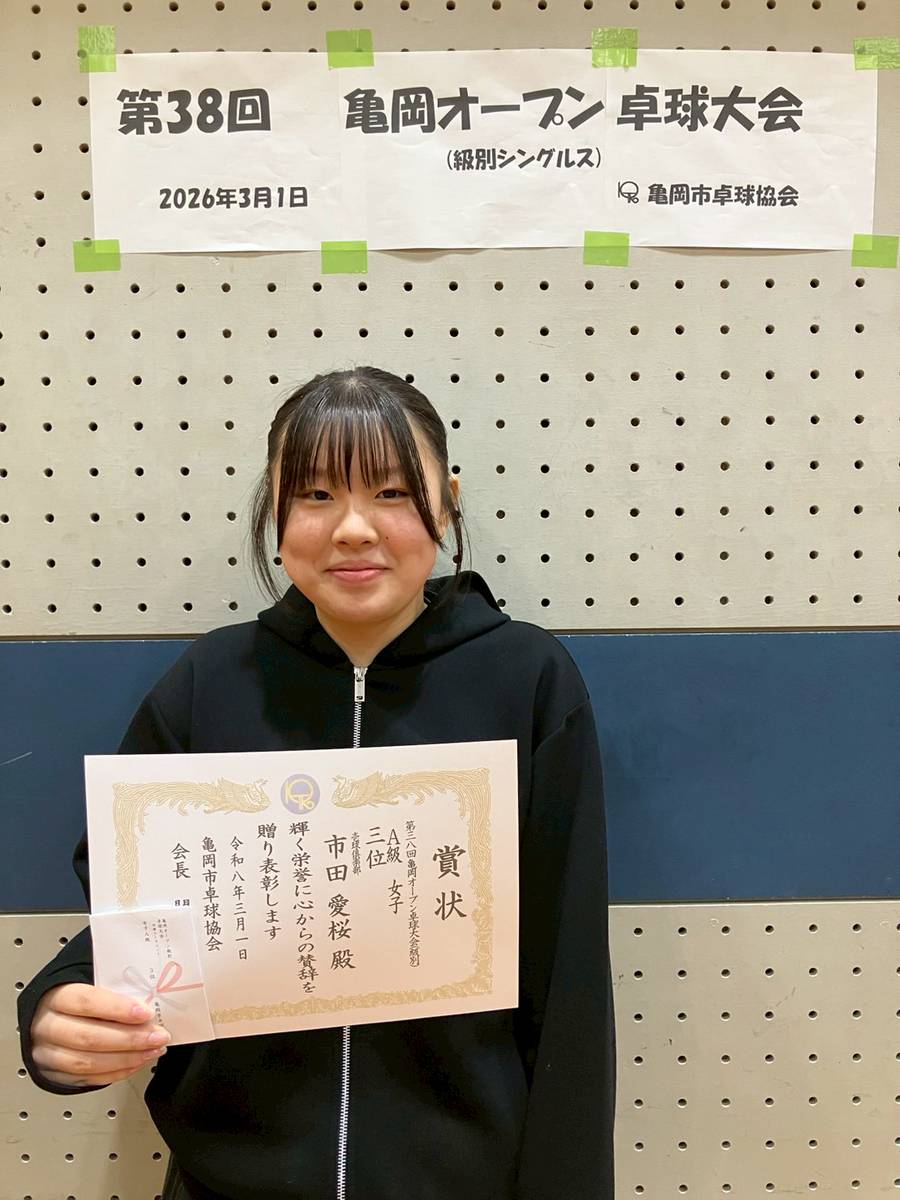 第38回 亀岡オープン 卓球大会
(級別シングルス)
2026年3月1日
亀岡市卓球協会
賞状
第三八回亀岡オープン卓球大会(級別)
A級 女子
三位
壱球倶楽部
市田 愛桜 殿
輝く栄誉に心からの賛辞を
贈り表彰します
令和八年三月一日
亀岡市卓球協会
会長
3位